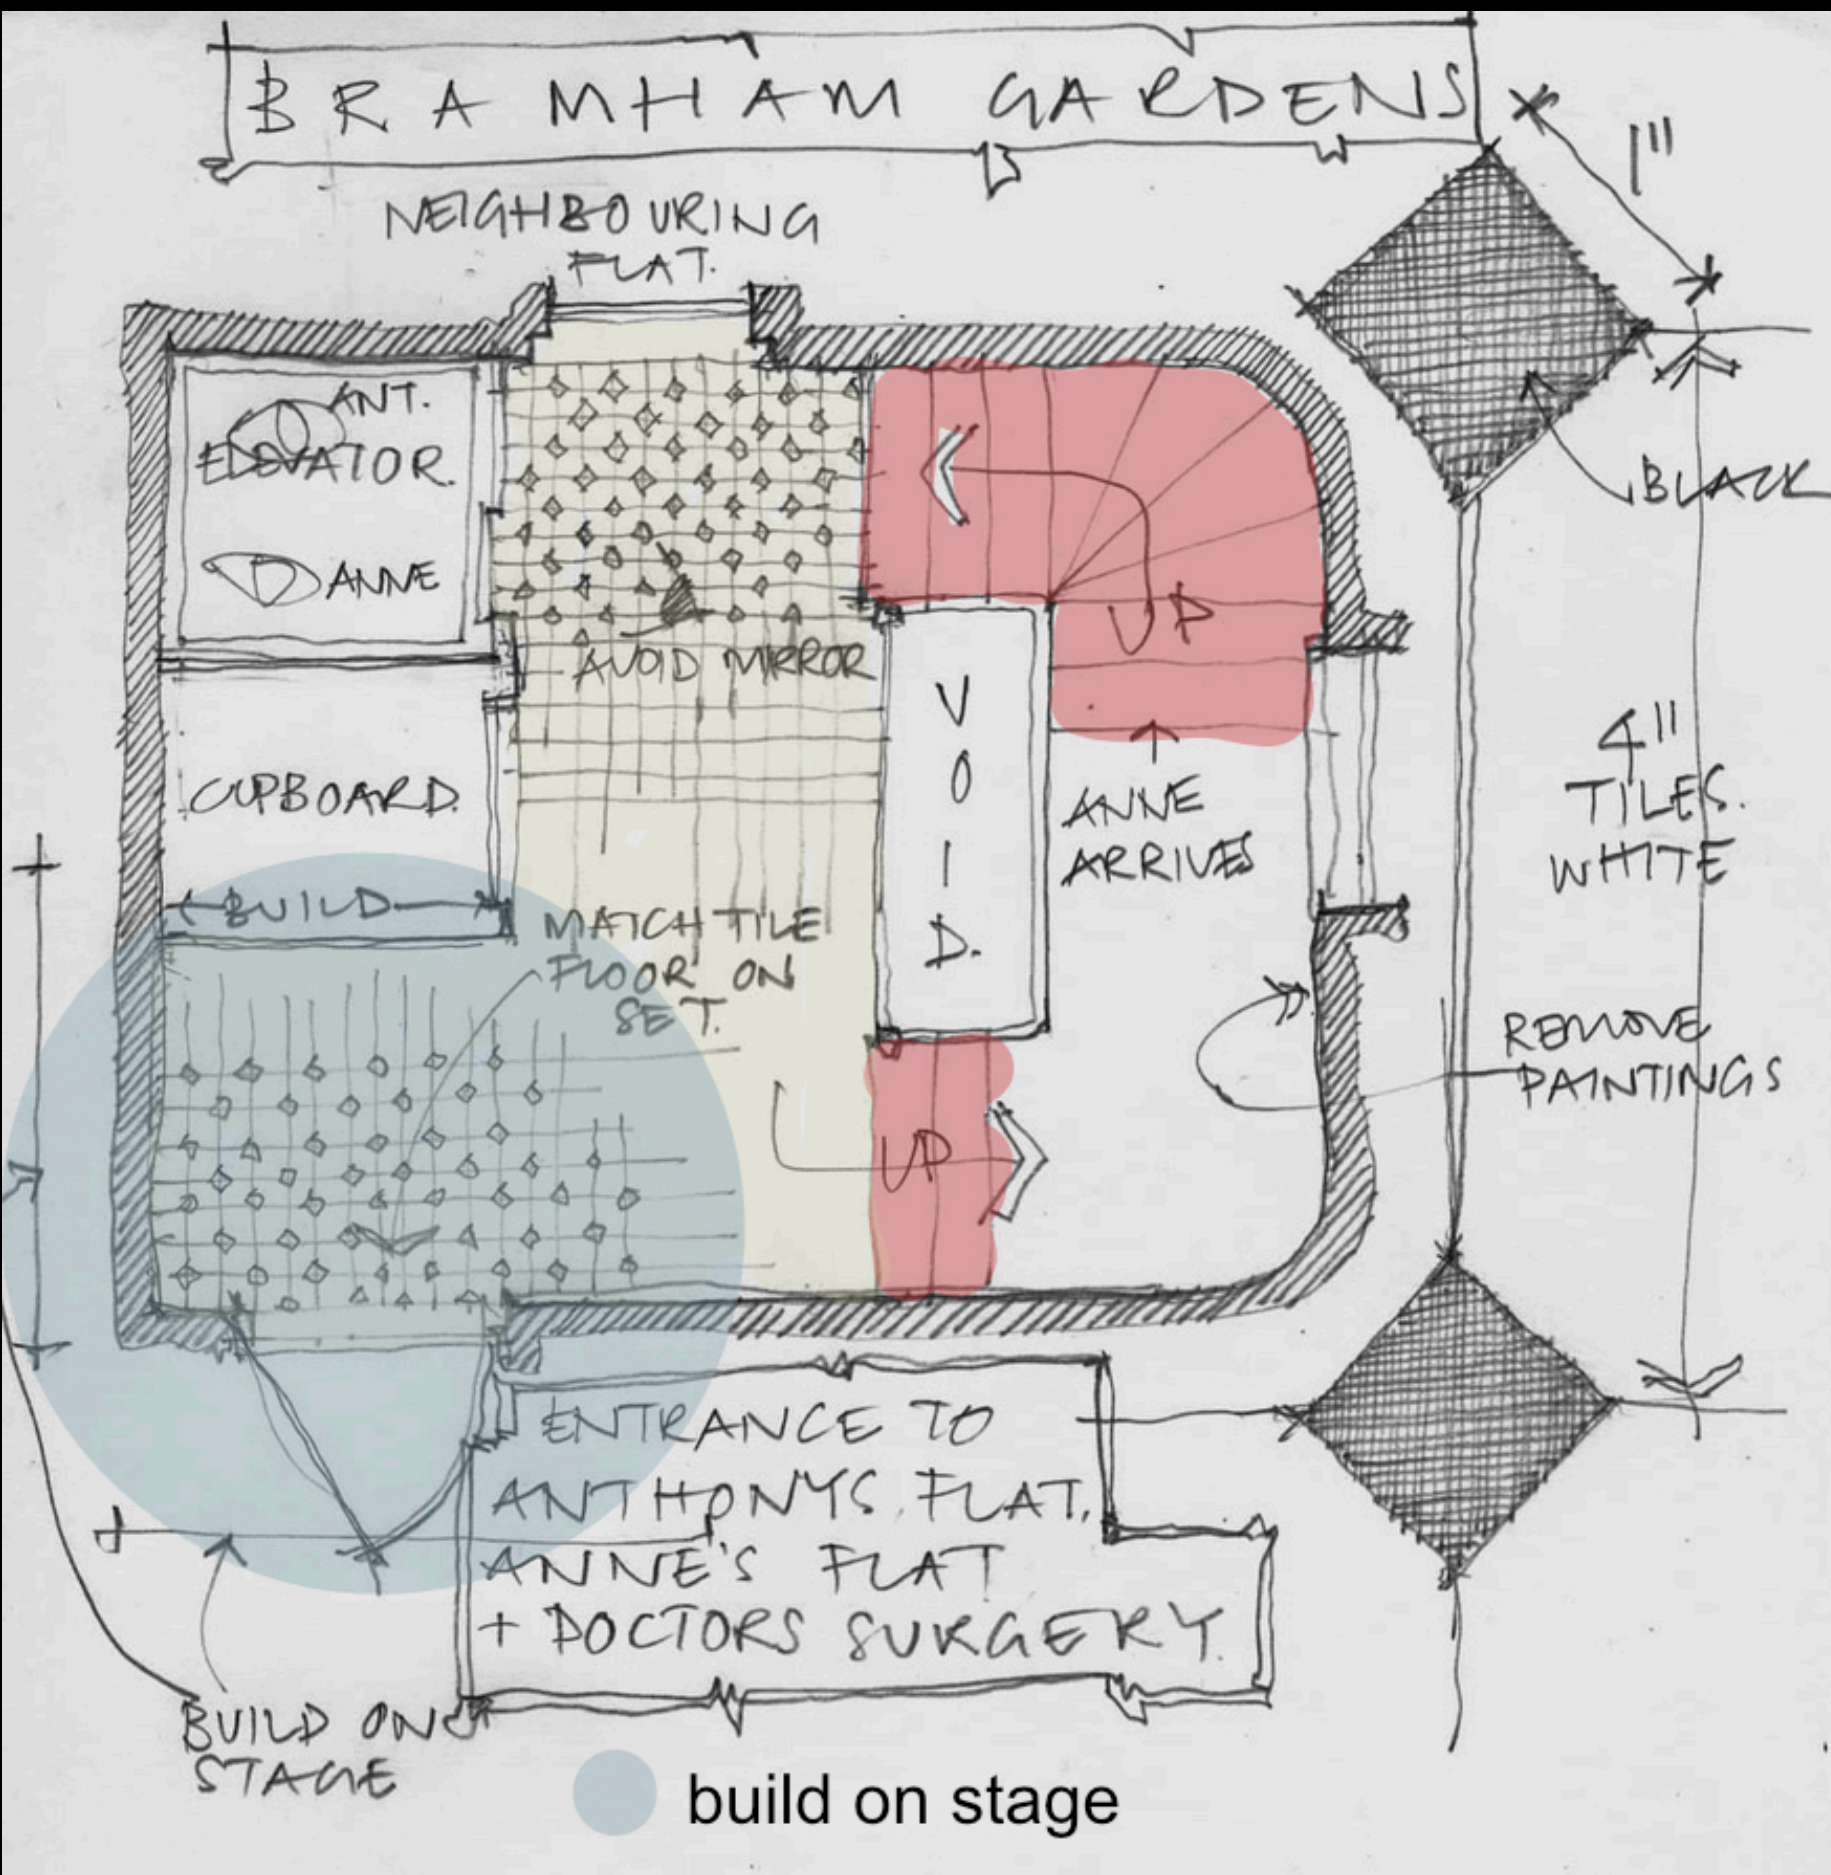 BRAMHAM GARDENS
1"
NEIGHBOURING
FLAT.
ANT.
ELEVATOR.
ANNE
BLACK
UP
AVOID MIRROR
VOID.
4"
TILES.
WHITE
CUPBOARD.
ANNE
ARRIVES
BUILD
MATCH TILE
FLOOR ON
SET.
REMOVE
PAINTINGS
UP
ENTRANCE TO
ANTHONYS FLAT,
ANNE'S FLAT
+ DOCTORS SURGERY.
BUILD ON
STAGE
build on stage